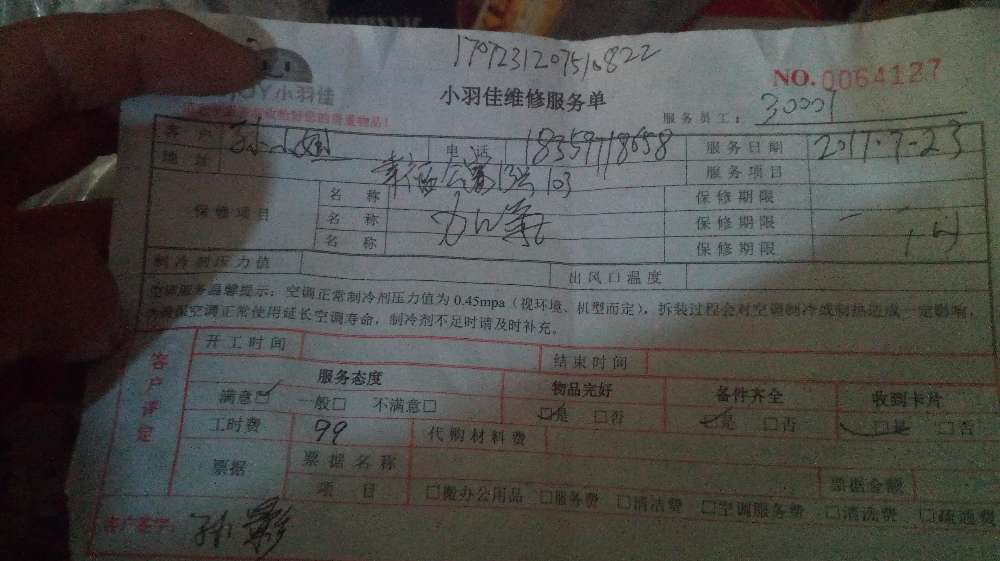 1707231207510822
小羽佳
NO.0064127
小羽佳维修服务单
服务员工： 30001
的贵重物品！
客户 电话 18359718658 服务日期 2017.7-23
地址 幸福公寓 103 服务项目
保修项目 名称 保修期限
名称 加氟 保修期限
名称 保修期限
制冷剂压力值 出风口温度
空调服务温馨提示：空调正常制冷剂压力值为0.45mpa（视环境、机型而定），拆装过程会对空调制冷或制热造成一定影响，
为确保空调正常使用延长空调寿命，制冷剂不足时请及时补充。
客户评定
开工时间 结束时间
服务态度 物品完好 备件齐全 收到卡片
满意☑ 一般□ 不满意□ ☑是 □否 ☑是 □否 ☑是 □否
工时费 99 代购材料费
票据 票据名称 票据金额
项目 □搬办公用品 □服务费 □清洁费 □空调服务费 □清洗费 □疏通费
客户签字： 孙影